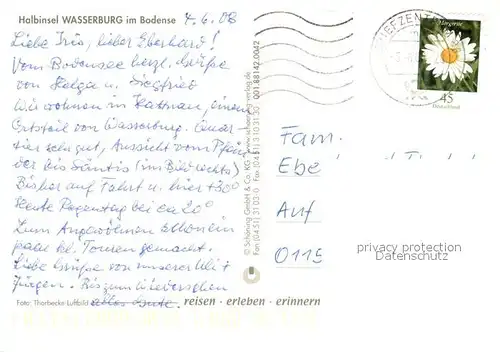 Halbinsel WASSERBURG im Bodensee 4.6.08
Liebe Iris, lieber Eberhard!
Vom Bodensee herzl. Grüße
von Helga u. Siegfried
Wir wohnen in Hattnau, einem
Ortsteil von Wasserburg. Quar-
tier sehr gut, Aussicht vom Pfän-
der bis Säntis (im Bild rechts)
Bisher auf Fahrt u. hier +30°
Heute Regentag bei ca 20°
Zum Angewöhnen schon ein
paar kl. Touren gemacht.
Liebe Grüße von unserer Uli +
Jürgen. Bis zum Wiedersehen
alles Gute.
Foto: Thorbecke-Luftbild
reisen - erleben - erinnern
© Schöning GmbH & Co. KG · www.schoening-verlag.de
Fon (0451) 31 03-0 Fax (0451) 3 10 31 30 001.88142.0042
BRIEFZENTRUM
Margerite
45
Deutschland
Fam.
Ebe
Auf
0115
privacy protection
Datenschutz